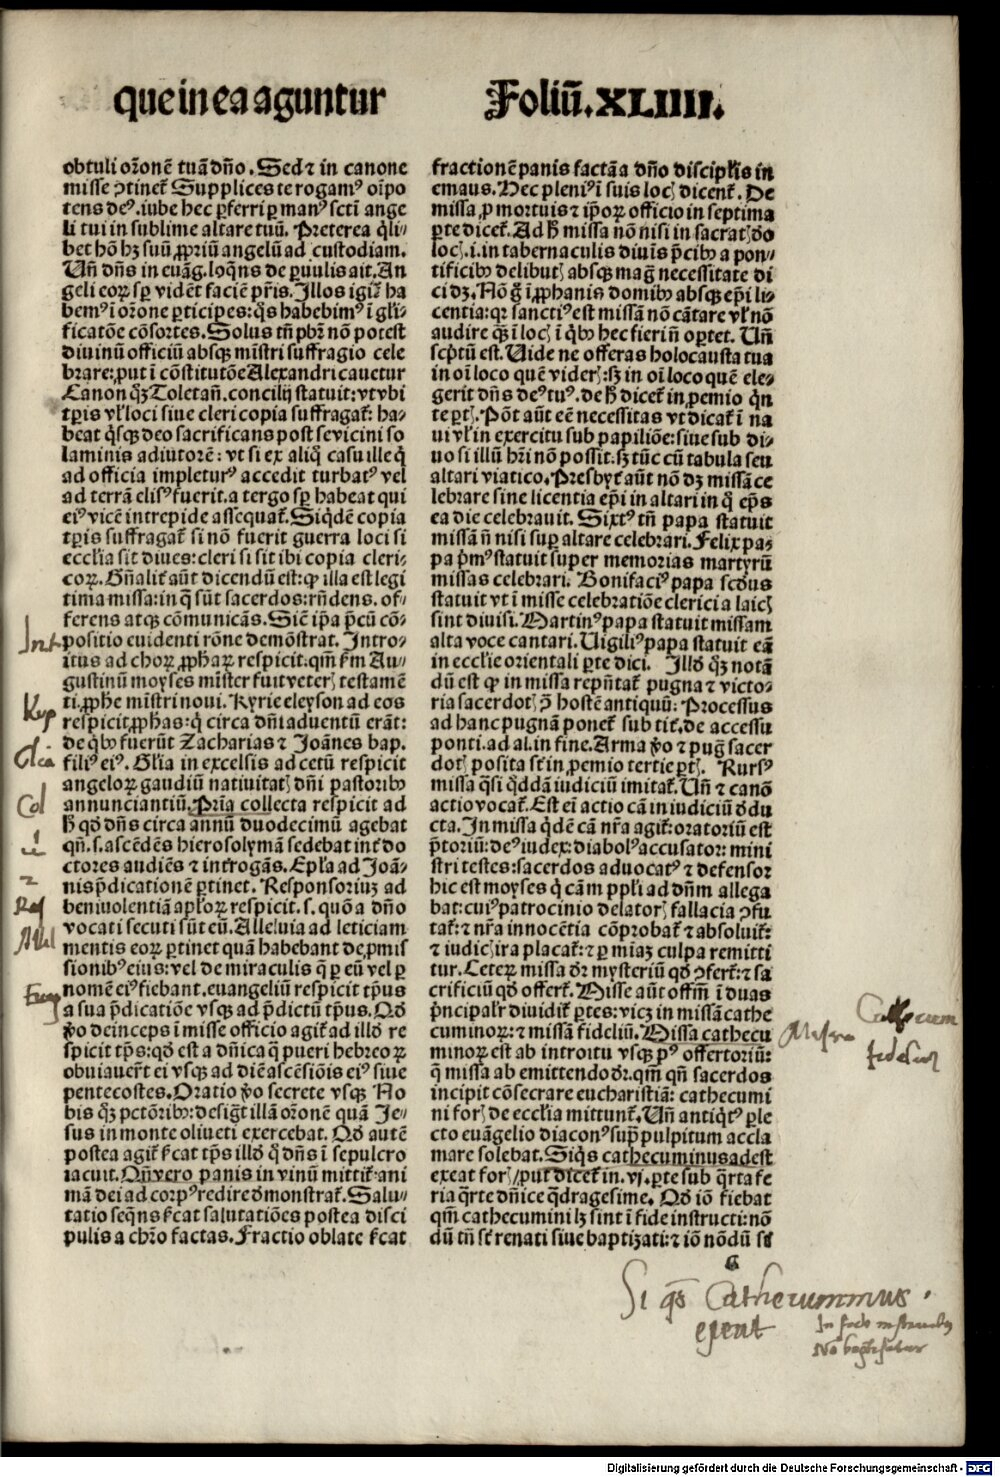 que in ea aguntur
Foliū.XLIIII.
obtuli or̄onē tuā dn̄o. Sed ⁊ in canone
misse ꝯtinet᷑ Supplices te rogamꝰ oīpo
tens deꝰ. iube hec ꝑferri ꝑ manꝰ sctī ange
li tui in sublime altare tuū. Preterea q̄li⸗
bet hō hꝫ suū ꝓpriū angelū ad custodiam.
Un̄ dn̄s in euāg. loq̄ns de ꝑuulis ait. An
geli eoꝝ sꝑ vidēt faciē pr̄is. Illos igit᷑ ha
bemꝰ ī or̄one ꝑticipes: q̄s habebimꝰ ī gl̄i⸗
ficatōe cōsortes. Solus tn̄ pb̄r nō potest
diuinū officiū absqꝫ mīstri suffragio cele
brare: put ī cōstitutōe Alexandri cauetur
Canon qꝫ Toletan̄. concilij statuit: vt vbi
tꝑis vl̓ loci siue cleri copia suffragat᷑: ha⸗
beat q̄sqꝫ deo sacrificans post se vicini so
laminis adiutorē: vt si ex aliq̄ casu ille q̄
ad officia impleturꝰ accedit turbatꝰ vel
ad terrā elisꝰ fuerit. a tergo sꝑ habeat qui
eiꝰ vicē intrepide asseqat᷑. Siq̄dē copia
tꝑis suffragat᷑ si nō fuerit guerra loci si
eccl̓ia sit diues: cleri si sit ibi copia cleri⸗
coꝝ. Gn̄alit᷑ aūt dicendū est: ꝙ illa est legi
tima missa: in q̄ sūt sacerdos: rn̄dens. of⸗
ferens atqꝫ cōmunicās. Sic̄ ip̄a p̄cū cō⸗
positio euidenti rōne demōstrat. Intro⸗
itus ad choꝝ ꝓph̄aꝝ respicit. qm̄ ẜm Au⸗
gustinū moyses mīster fuit veterꝭ testamē
ti. ꝓphe mīstri noui. Kyrie eleyson ad eos
respicit ꝓphas: q̄ circa dn̄i aduentū erāt:
de qibꝰ fuerūt Zacharias ⁊ Joānes bap.
filiꝰ eiꝰ. Gl̄ia in excelsis ad cetū respicit
angeloꝝ gaudiū natiuitatꝭ dn̄i pastoribꝰ
annunciantiū. Prīa collecta respicit ad
h̄ qd̄ dn̄s circa annū duodecimū agebat
qn̄. s. ascēdēs hierosolymā sedebat int᷑ do
ctores audiēs ⁊ int᷑rogās. Epl̄a ad Joā⸗
nis p̄dicationē ꝑtinet. Responsoriuꝫ ad
beniuolentiā apl̓oꝝ respicit. s. quō a dn̄o
vocati secuti sūt eū. Alleluia ad leticiam
mentis eoꝝ ꝑtinet quā habebant de ꝓmis
sionibꝰ eius: vel de miraculis q̄ ꝑ eū vel ꝑ
nomē eiꝰ fiebant. euangeliū respicit tp̄us
a sua p̄dicatiōe vsqꝫ ad p̄dictū tp̄us. Qd̄
ꝟo deinceps ī misse officio agit᷑ ad illd̄ re
spicit tp̄s: qd̄ est a dn̄ica q̄ pueri hebreoꝝ
obuiauer̄t ei vsqꝫ ad diē ascēsiōis eiꝰ siue
pentecostes. Oratio ꝟo secrete vsqꝫ No
bis qꝫ pctōribꝰ: desigt᷑ illā or̄onē quā Je⸗
sus in monte oliueti exercebat. Qd̄ autē
postea agit᷑ ẜcat tp̄s illd̄ q̄ dn̄s ī sepulcro
iacuit. Qn̄ vero panis in vinū mittit᷑ ani
mā dei ad corpꝰ redire dmonstrat᷑. Salu⸗
tatio seq̄ns ẜcat salutatiōes postea disci
pulis a chr̄o factas. Fractio oblate ẜcat
fractionē panis factā a dn̄o discipl̓is in
emaus. Hec pleniꝰ ī suis locꝭ dicent᷑. De
missa ꝓ mortuis ⁊ ip̄oꝝ officio in septima
ꝑte dicet᷑. Ad h̄ missa nō nisi in sacratꝭ do
locꝭ. i. in tabernaculis diuīs p̄cibꝰ a pon⸗
tificibꝰ delibutꝭ absqꝫ mag᷑ necessitate di
ci dꝫ. Nō g̊ ī ꝓphanis domibꝰ absqꝫ ep̄i li⸗
centia: qꝛ sanctiꝰ est missā nō cātare vl̓ nō
audire q̄ꝫ ī locꝭ ī qibꝰ hec fieri nō oꝑtet. Un̄
scp̄tū est. Uide ne offeras holocausta tua
in oī loco quē viderꝭ: sꝫ in oī loco quē ele⸗
gerit dn̄s deꝰ tuꝰ. de h̄ dicet᷑ in ꝓemio q̄n
te ꝑtꝭ. Pōt aūt eē necessitas vt dicat᷑ ī na
ui vl̓ in exercitu sub papiliōe: siue sub di⸗
uo si illū hr̄i nō possit. sꝫ tūc cū tabula seu
altari viatico. Presbyt᷑ aūt nō dꝫ missā ce
lebrare sine licentia ep̄i in altari in q̄ ep̄s
ea die celebrauit. Sixtꝰ tn̄ papa statuit
missā n̄ nisi suꝑ altare celebrari. Felix pa⸗
pa p̄mꝰ statuit super memorias martyrū
missas celebrari. Bonifaciꝰ papa scd̄us
statuit vt ī misse celebratiōe clerici a laicꝭ
sint diuisi. Martinꝰ papa statuit missam
alta voce cantari. Uigiliꝰ papa statuit eā
in eccl̓ie orientali ꝑte dici. Illd̄ qꝫ notā
dū est ꝙ in missa repn̄tat᷑ pugna ⁊ victo⸗
ria sacerdotꝭ ꝯ̄ hostē antiquū: Processus
ad hanc pugnā ponet᷑ sub tit᷑. de accessu
ponti. ad al. in fine. Arma ꝟo ⁊ pug̊ sacer
dotꝭ posita st᷑ in ꝓemio tertie ꝑtꝭ. Rursꝰ
missa q̄si q̄ddā iudiciū imitat᷑. Un̄ ⁊ canō
actio vocat᷑. Est ei actio cā in iudiciū ddu
cta. In missa q̄dē cā nr̄a agit᷑: oratoriū est
p̄toriū: deꝰ iudex: diabolꝰ accusator: mini
stri testes: sacerdos aduocatꝰ ⁊ defensor
hic est moyses q̄ cām ppl̓i ad dn̄m allega
bat: cuiꝰ patrocinio delatorꝭ fallacia ꝯfu
tat᷑: ⁊ nr̄a innocētia cōprobat᷑ ⁊ absoluit᷑:
⁊ iudicꝭ ira placat᷑: ⁊ ꝑ miaꝫ culpa remitti
tur. Ceteꝝ missa dr̄ mysteriū qd̄ ꝯfert᷑: ⁊ sa
crificiū qd̄ offert᷑. Misse aūt offm̄ ī duas
p̄ncipal̓r diuidit᷑ ꝑtes: vicꝫ in missā cathe
cuminoꝝ: ⁊ missā fideliū. Missa cathecu
minoꝝ est ab introitu vsqꝫ pꝰ offertoriū:
q̄ missa ab emittendo dr̄. qm̄ qn̄ sacerdos
incipit cōsecrare eucharistiā: cathecumi
ni forꝭ de eccl̓ia mittunt᷑. Un̄ antiq̄tꝰ ꝑle
cto euāgelio diaconꝰ sup̄ pulpitum accla
mare solebat. Siq̄s cathecuminus adest
exeat forꝭ/put dicet᷑ in. vj. ꝑte sub q̄rta fe
ria q̄rte dn̄ice q̄dragesime. Qd̄ iō fiebat
qm̄ cathecumini lꝫ sint ī fide instructi: nō
dū tn̄ st᷑ renati siue baptizati: ⁊ iō nōdū st᷑
G
Int
Kyr
Glīa
Col
Aĺĺel
Euang
Missa
fidelium
Si qs Cathecuminus
exeat
Digitalisierung gefördert durch die Deutsche Forschungsgemeinschaft - DFG